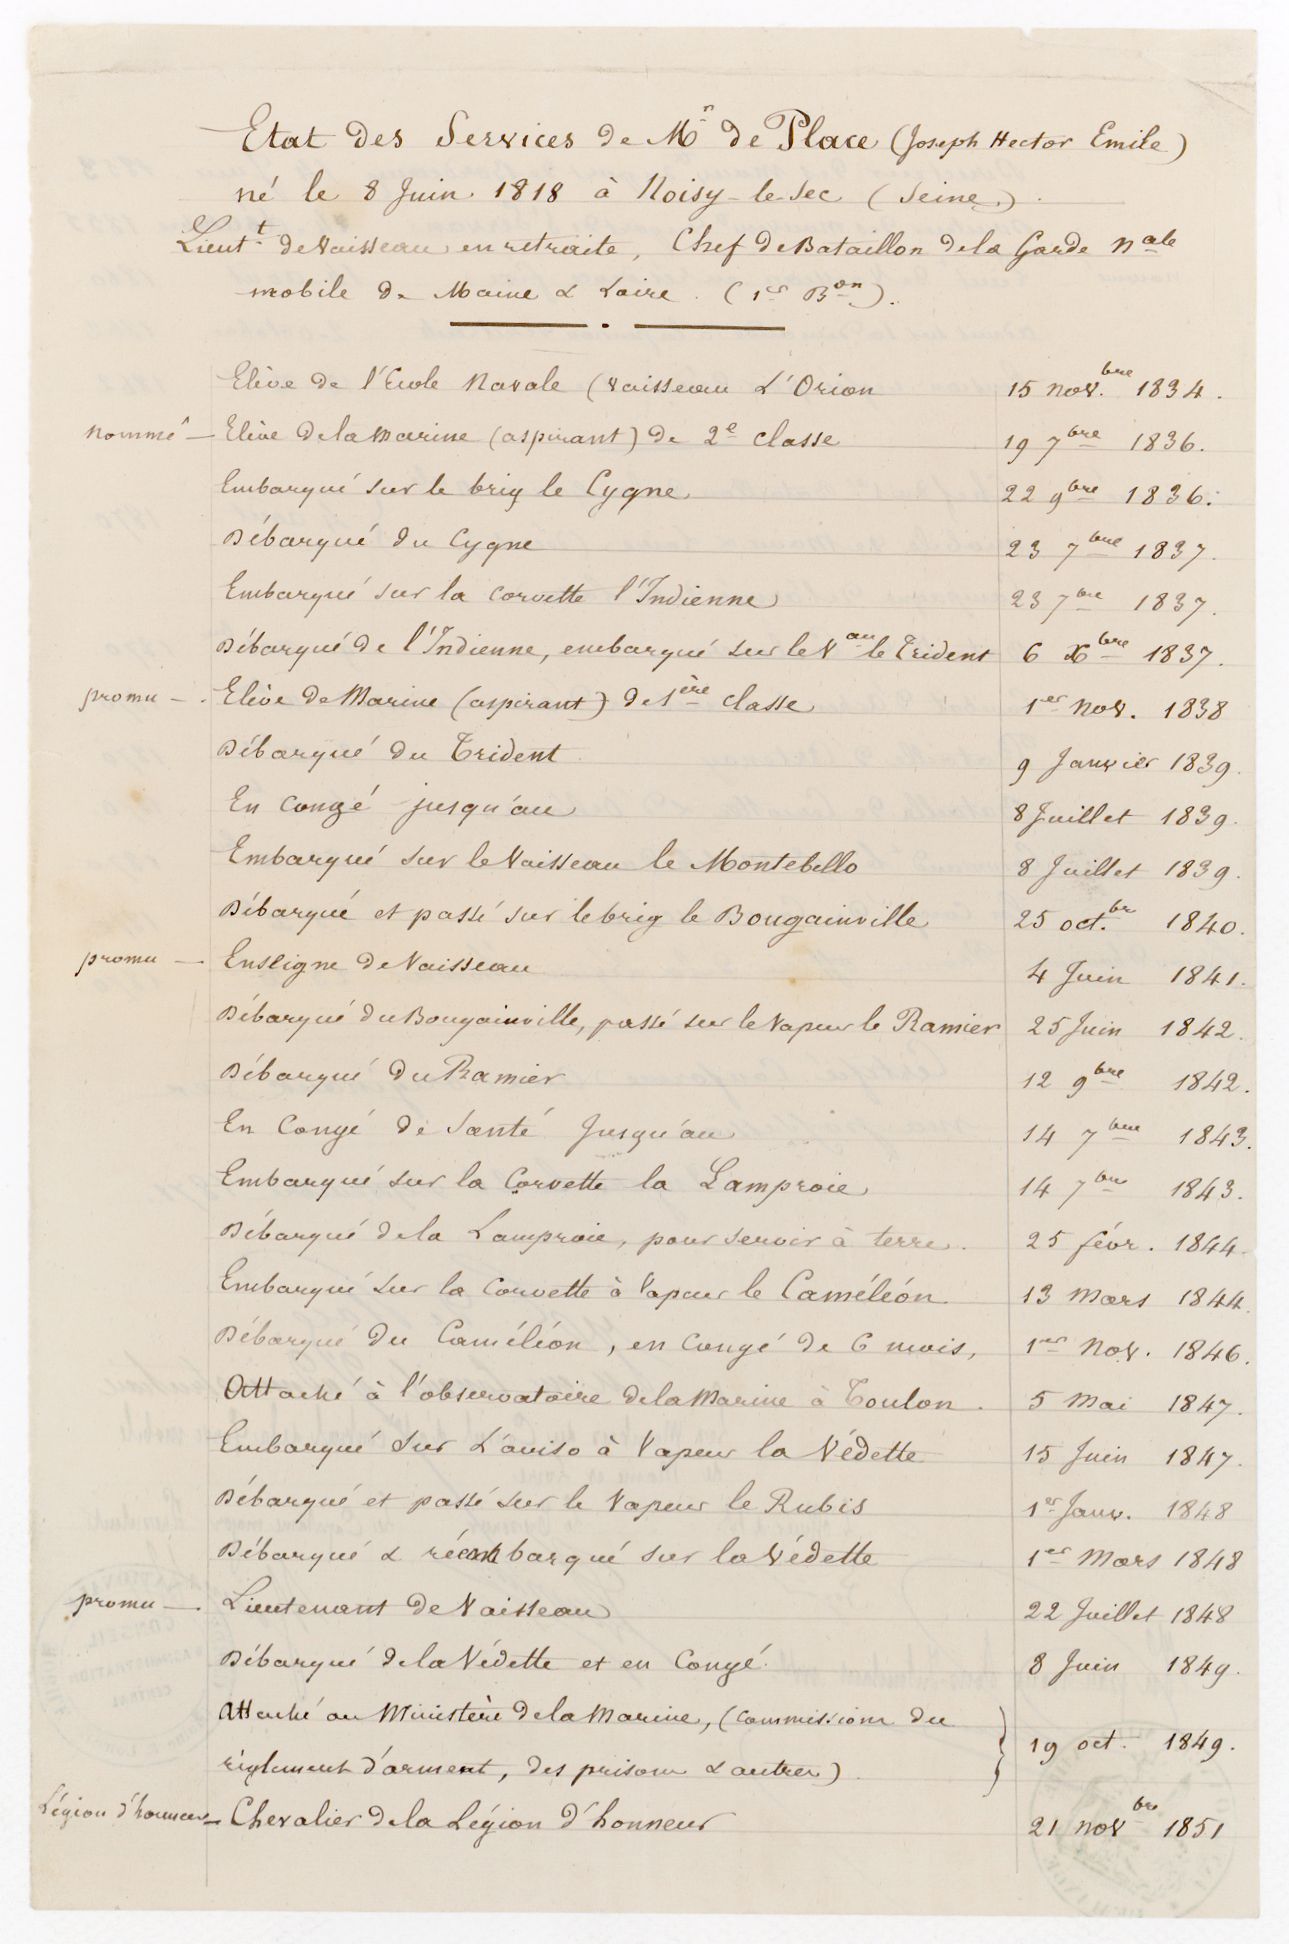 Etat des Services de Mr de Place (Joseph Hector Emile)
né le 8 Juin 1818 à Noisy-le-Sec (Seine).
Lieutt de Vaisseau en retraite, Chef de Bataillon de la Garde Nale
mobile de Maine & Loire. (1er Bon).
Elève de l'Ecole Navale (vaisseau L'Orion 15 nov.bre 1834.
nommé — Elève de la Marine (aspirant) de 2e classe 19 7bre 1836.
Embarqué sur le brig le Cygne 22 9bre 1836.
Débarqué du Cygne 23 7bre 1837.
Embarqué sur la corvette l'Indienne 23 7bre 1837.
Débarqué de l'Indienne, embarqué sur le Vau le Trident 6 Xbre 1837.
promu — Elève de Marine (aspirant) de 1ère classe 1er Nov. 1838
Débarqué du Trident 9 Janvier 1839.
En congé jusqu'au 8 Juillet 1839.
Embarqué sur le Vaisseau le Montebello 8 Juillet 1839.
Débarqué et passé sur le brig le Bougainville 25 oct.bre 1840.
promu — Enseigne de Vaisseau 4 Juin 1841.
Débarqué du Bougainville, passé sur le Vapeur le Ramier 25 Juin 1842.
Débarqué du Ramier 12 9bre 1842.
En Congé de Santé Jusqu'au 14 7bre 1843.
Embarqué sur la Corvette la Lamproie 14 7bre 1843.
Débarqué de la Lamproie, pour servir à terre. 25 févr. 1844
Embarqué sur la Corvette à Vapeur le Caméléón 13 Mars 1844.
Débarqué du Caméléón, en congé de 6 mois, 1er Nov. 1846.
Attaché à l'observatoire de la Marine à Toulon. 5 Mai 1847.
Embarqué sur L'aviso à Vapeur la Védette 15 Juin 1847.
Débarqué et passé sur le Vapeur le Rubis 1er Janv. 1848
Débarqué & réembarqué sur la Védette 1er Mars 1848
promu — Lieutenant de Vaisseau 22 Juillet 1848
Débarqué de la Védette et en Congé. 8 Juin 1849.
Attaché au Ministère de la Marine, (commissions du
règlement d'arment, des prisons & autres) 19 oct. 1849.
Légion d'honneur — Chevalier de la Légion d'honneur 21 novbre 1851